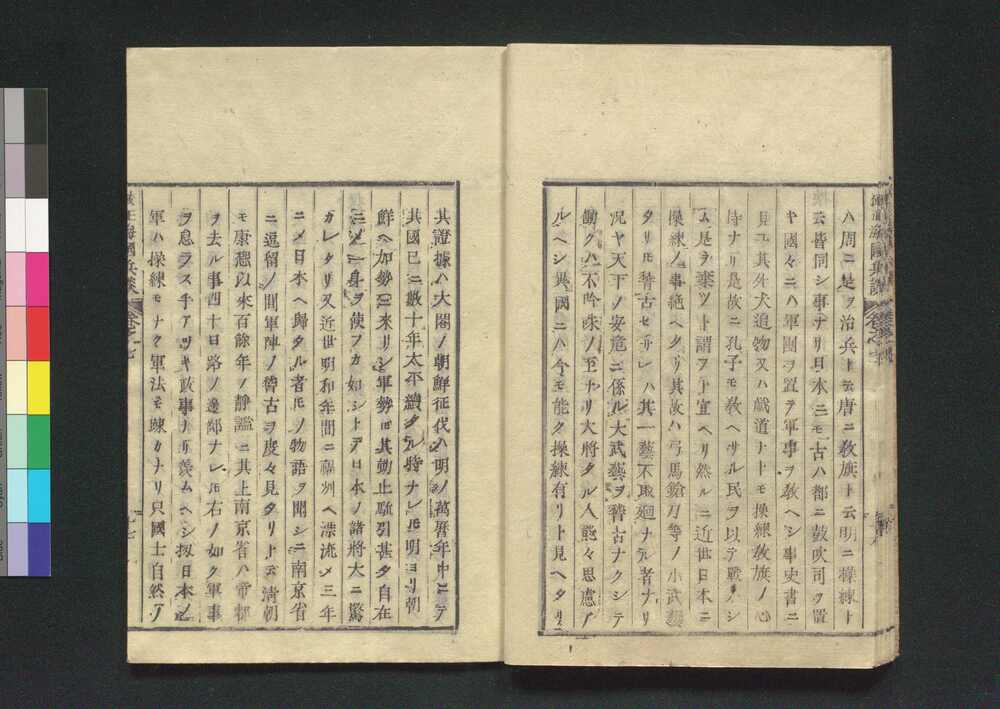 ハ周ニ是ヲ治兵ト云唐ニ敎旗ト云明ニ操練ト
云皆同シ事ナリ日本ニモ古ハ都ニ鼓吹司ヲ置
キ國々ニハ軍團ヲ置テ軍事ヲ敎ヘシ事史書ニ
見ユ其外犬追物又ハ戯道ナトモ操練敎旗ノ心
持ナリ是故ニ孔子モ敎ヘサル民ヲ以テ戰ハシ
ム是ヲ棄ツト謂フト宣ヘリ然ルニ近世日本ニ
操練ノ事絶ヘタリ其故ハ弓馬鎗刀等ノ小武藝
タリ𪜈稽古セサレハ其一藝不取廻ナル者ナリ
况ヤ天下ノ安危ニ係ル大武藝ヲ稽古ナクシテ
働クハ不吟味ノ至ナリ大將タル人能々思慮ア
ルヘシ異國ニハ今モ能ク操練有リト見ヘタリ
其證據ハ大閤ノ朝鮮征伐ハ明ノ萬曆年中ニテ
其國已ニ數十年太平續タル時ナレ𪜈明ヨリ朝
鮮ヘ加勢ニ來リシ軍勢𪜈其動止駈引甚タ自在
ニメ一身ヲ使フカ如シトテ日本ノ諸將大ニ驚
カレタリ又近世明和年間ニ福州ヘ漂流メ三年
ニメ日本ヘ歸タル者𪜈ノ物語ヲ聞シニ南京省
ニ逗留ノ間軍陣ノ稽古ヲ度々見タリト云淸朝
モ康熙以來百餘年ノ靜謐ニ其上南京省ハ帝都
ヲ去ル事四十日路ノ邊鄙ナレ𪜈右ノ如ク軍事
ヲ息ラス手アツキ政事ナリ羨ムヘシ扨日本ノ
軍ハ操練モナク軍法モ疎カナリ只國土自然ノ
海國兵談